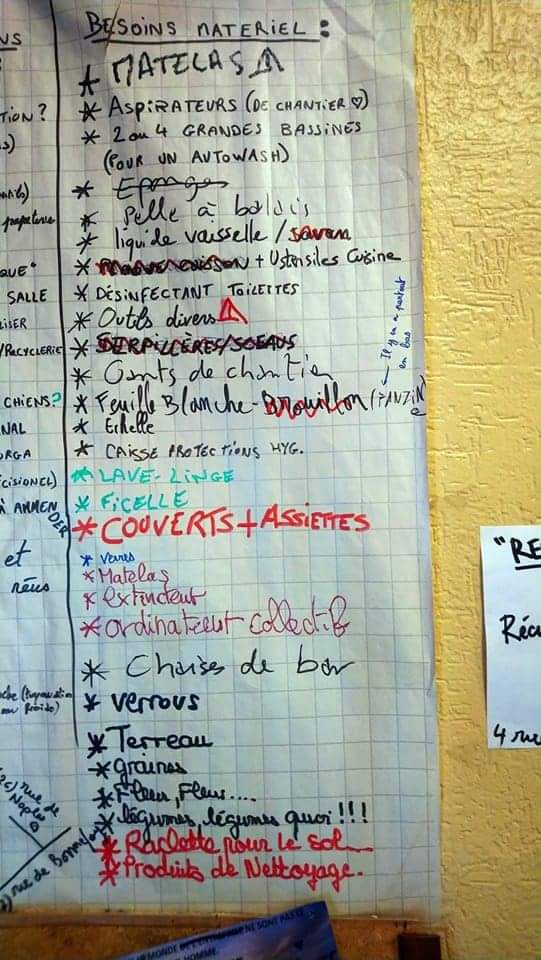 BESOINS MATERIEL :
* MATELAS
* ASPIRATEURS (DE CHANTIER ♡)
* 2 ou 4 GRANDES BASSINES
(POUR UN AUTOWASH)
* Eponges
* Pelle à balais
* liquide vaisselle / savon
* + Ustensiles Cuisine
* DÉSINFECTANT TOILETTES
* Outils divers
* SERPILLÈRES/SCEAUS
* Gants de chantier
* Feuille Blanche - Brouillon (FANZINE
← Il y en a partout
en bas
* Echelle
* CAISSE PROTECTIONS HYG.
* LAVE-LINGE
* FICELLE
* COUVERTS + ASSIETTES
* verres
* Matelas
* extincteur
* ordinateur collectif
* Chaises de bar
* verrous
* Terreau
* graines
* Fleur, Fleur....
* légumes, légumes quoi !!!
* Raclette pour le sol
* Produits de Nettoyage.
NS
TION ?
s)
papeterie
QUE"
SALLE
LISER
/RECYCLERIE
CHIENS ?
NAL
ORGA
CISIONEL)
À AMMENDER
et
réus
rue de
Naples
rue de
"RE
Réc
4 rue
MONDE
NE SONT PAS
HOMME.